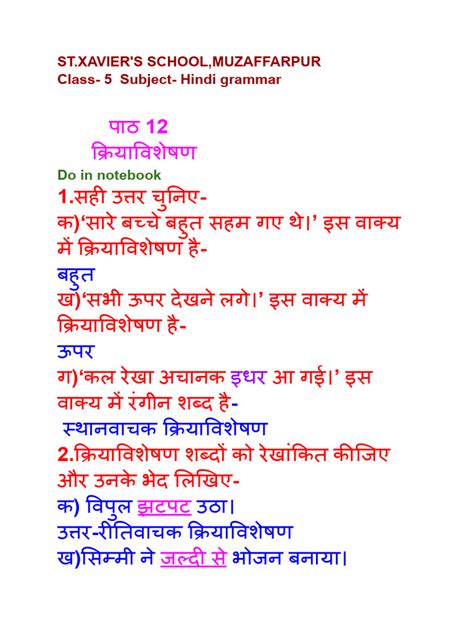 ST.XAVIER'S SCHOOL,MUZAFFARPUR
Class- 5 Subject- Hindi grammar
पाठ 12
क्रियाविशेषण
Do in notebook
1.सही उत्तर चुनिए-
क)‘सारे बच्चे बहुत सहम गए थे।’ इस वाक्य
में क्रियाविशेषण है-
बहुत
ख)‘सभी ऊपर देखने लगे।’ इस वाक्य में
क्रियाविशेषण है-
ऊपर
ग)‘कल रेखा अचानक इधर आ गई।’ इस
वाक्य में रंगीन शब्द है-
स्थानवाचक क्रियाविशेषण
2.क्रियाविशेषण शब्दों को रेखांकित कीजिए
और उनके भेद लिखिए-
क) विपुल झटपट उठा।
उत्तर-रीतिवाचक क्रियाविशेषण
ख)सिम्मी ने जल्दी से भोजन बनाया।